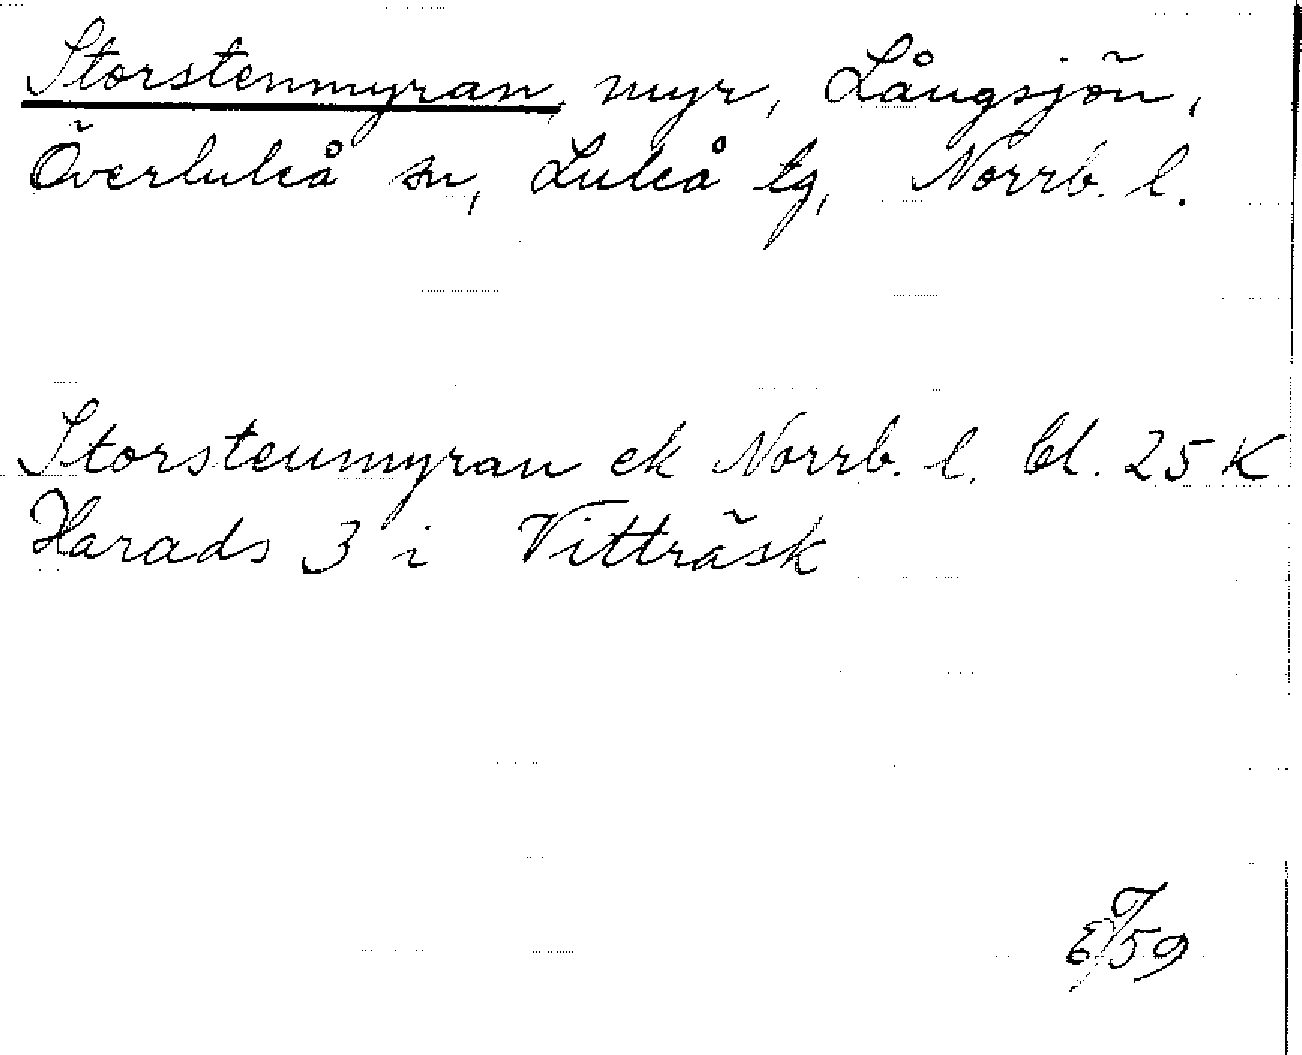 Storstenmyran, myr, Långsjön,
Överluleå sn, Luleå tg, Norrb. l.
Storstenmyran ek Norrb. l. bl. 25 K
Harads 3 i Vitträsk
59